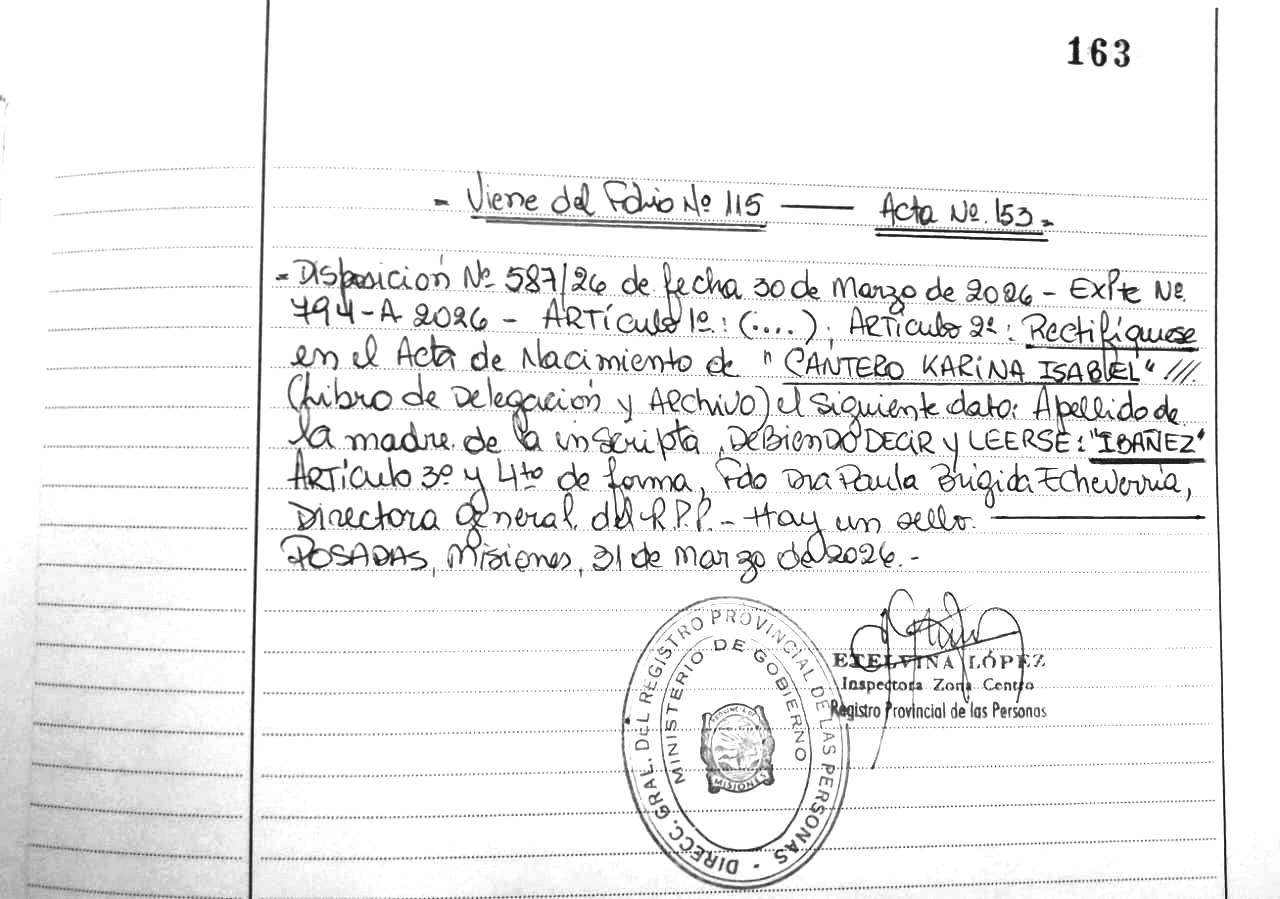 163
- Viene del Folio Nº 115 —— Acta Nº 153 -
- Disposición Nº 587/26 de fecha 30 de Marzo de 2026 - EXPte Nº
794-A 2026 - ARTÍCulo 1º: (....); ARTÍCulo 2º: Rectifíquese
en el Acta de Nacimiento de "CANTERO KARINA ISABEL" ///.
(Libro de Delegación y Archivo) el siguiente dato: Apellido de
la madre de la inscripta, DEBIENDO DECIR y LEERSE: "IBAÑEZ"
ARTÍCulo 3º y 4to de forma, Fdo Dra Paula Brigida Echeverria,
Directora General del R.P.P. - Hay un sello. ——
POSADAS, Misiones, 31 de Marzo de 2026.-
DIRECC. GRAL. DEL REGISTRO PROVINCIAL DE LAS PERSONAS -
MINISTERIO DE GOBIERNO
MISIONES
ETELVINA LÓPEZ
Inspectora Zona Centro
Registro Provincial de las Personas